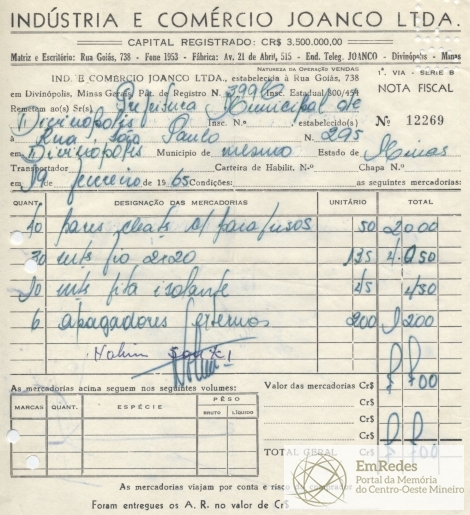 INDÚSTRIA E COMÉRCIO JOANCO LTDA.
CAPITAL REGISTRADO: CR$ 3.500.000,00
Matriz e Escritório: Rua Goiás, 738 - Fone 1953 - Fábrica: Av. 21 de Abril, 515 - End. Teleg. JOANCO - Divinópolis - Minas
NATUREZA DA OPERAÇÃO VENDAS
IND. E COMÉRCIO JOANCO LTDA., estabelecida à Rua Goiás, 738
1ª. VIA - SERIE B
em Divinópolis, Minas Gerais Pat. de Registro N. Insc. Estadual 800/454
NOTA FISCAL
Remetem ao(s) Sr(s) Prefeitura Municipal de
Divinópolis Insc. N.o estabelecido(s)
Nº 12269
Rua São Paulo N. 295
em Divinópolis Municipio de mesmo Estado de Minas
Transportador Carteira de Habilit. N.o Chapa N.o
19 de fevereiro de 1965 Condições: as seguintes mercadorias:
QUANT. DESIGNAÇÃO DAS MERCADORIAS UNITÁRIO TOTAL
pares cleats c/ parafusos 50
30 mts fio 2x20 135 4.050
10 mts fita isolante 45 450
6 apagadores externos 200 1200
As mercadorias acima seguem nos seguintes volumes:
Valor das mercadorias Cr$
MARCAS QUANT. ESPÉCIE PÊSO
BRUTO LÍQUIDO
Cr$
Cr$
Cr$
TOTAL GERAL
EmRedes
Portal da Memória
do Centro-Oeste Mineiro
As mercadorias viajam por conta e risco do
Foram entregues os A. R. no valor de Cr$